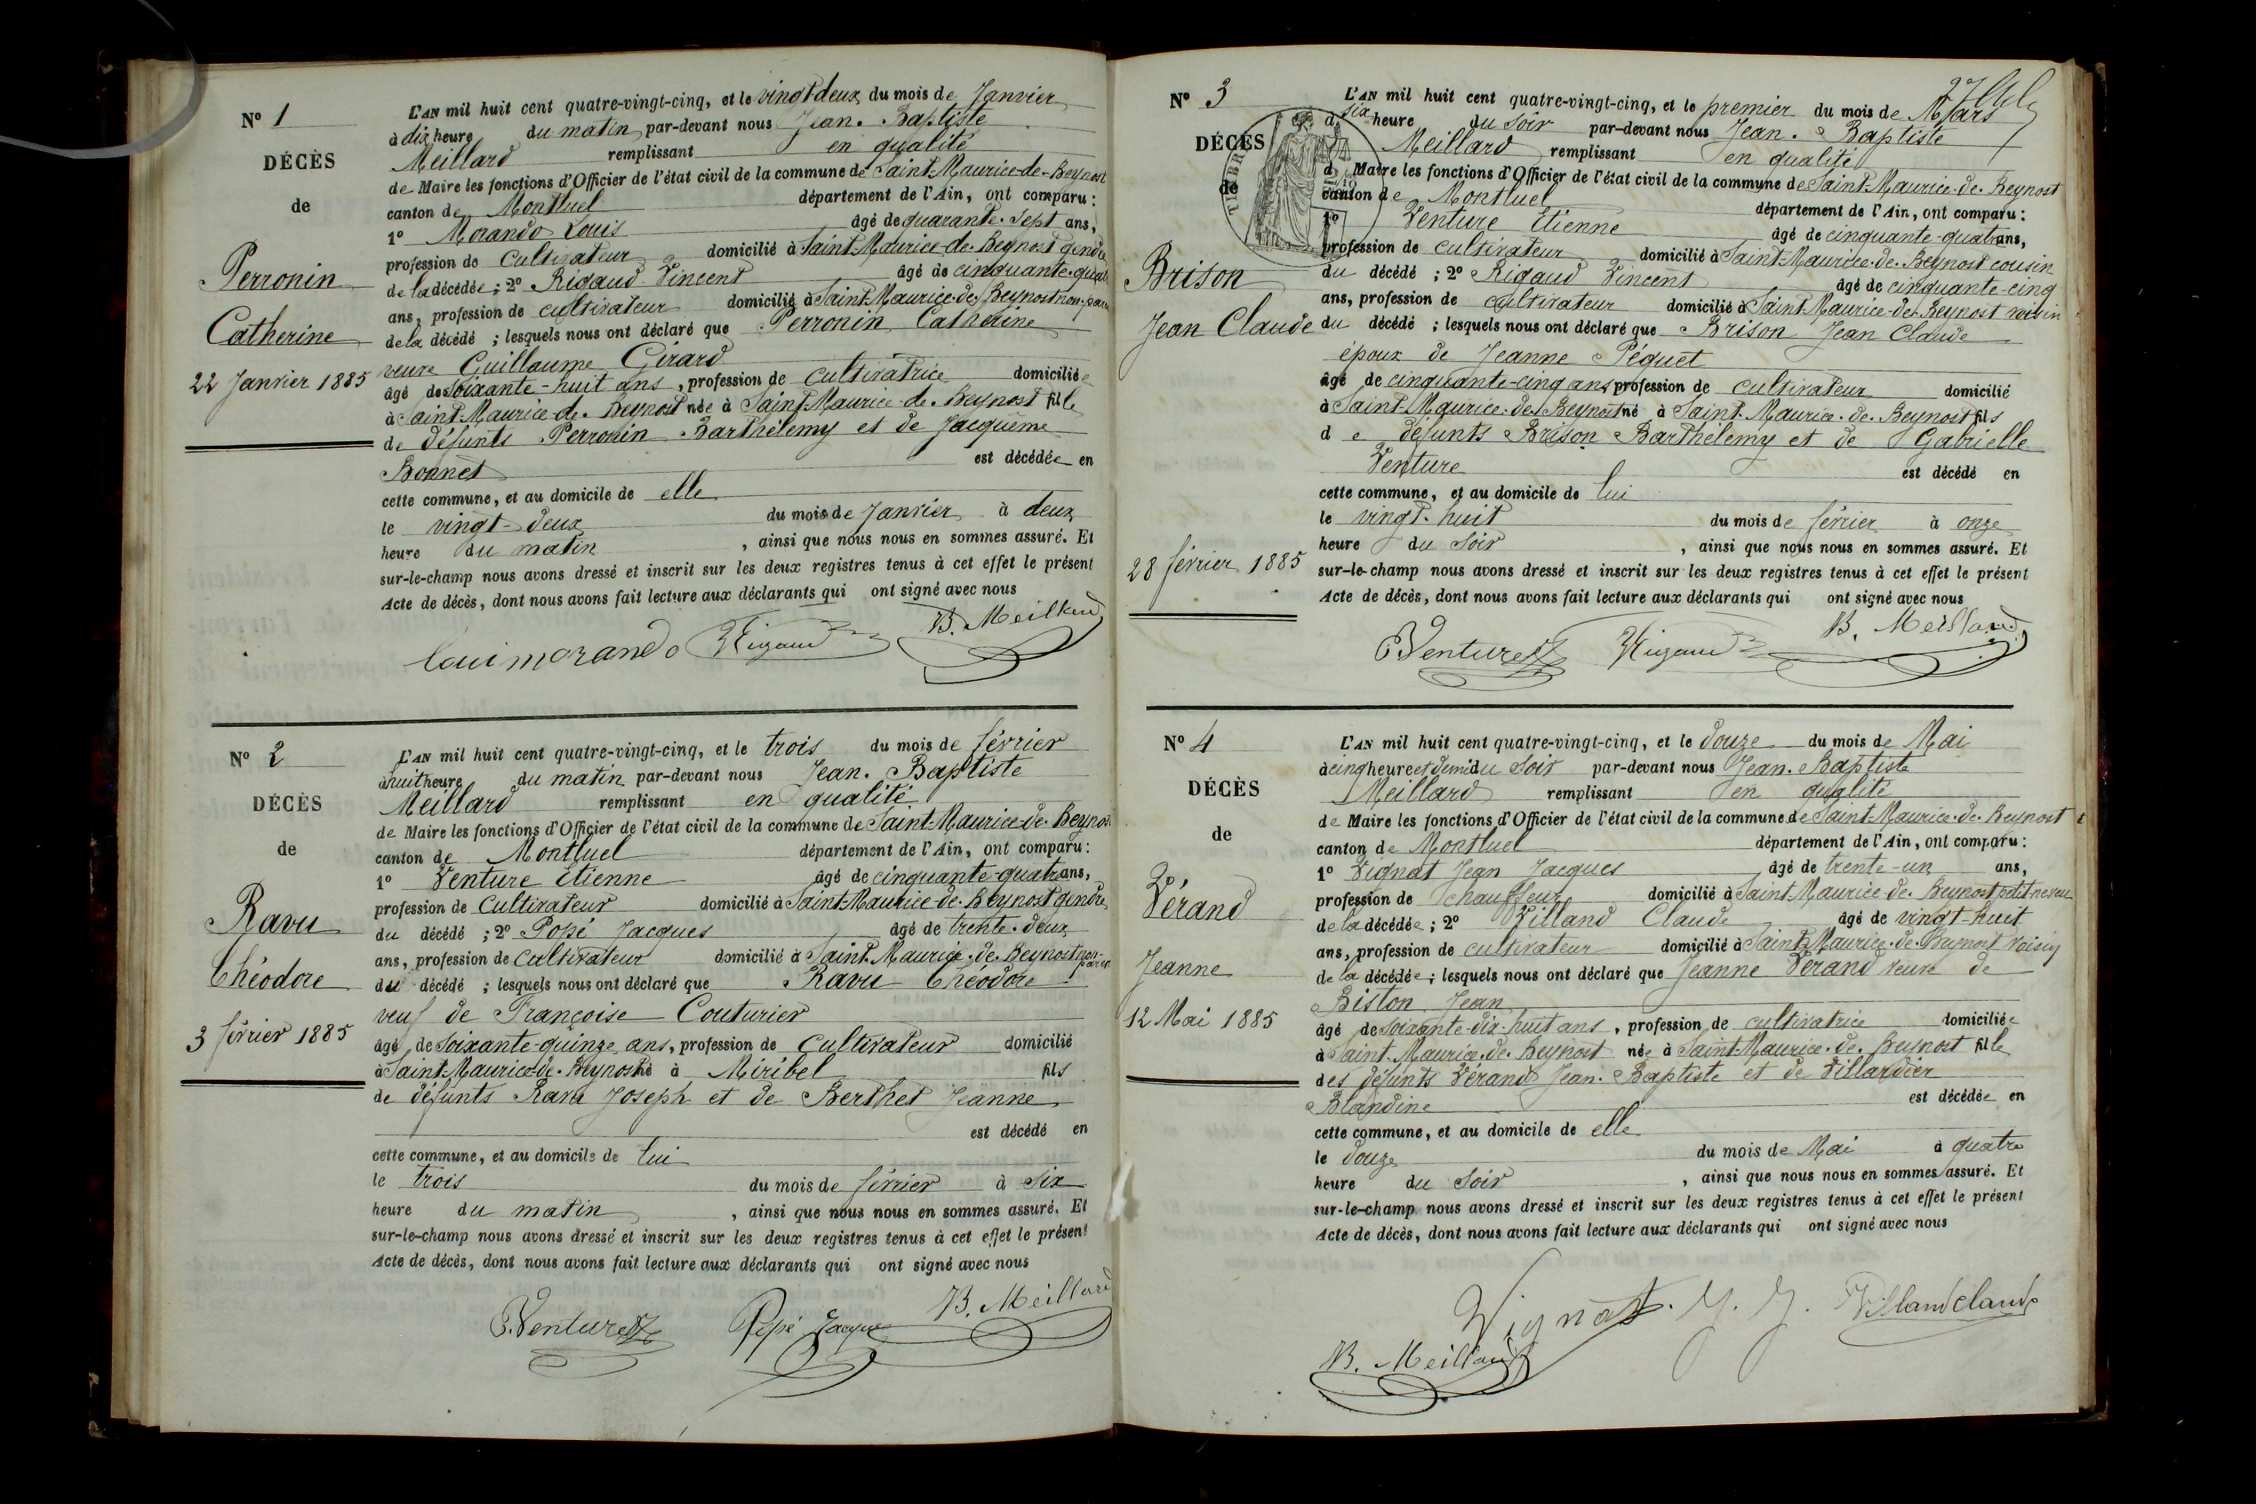 N° 1
DÉCÈS
de
Perronin
Catherine
22 Janvier 1885
L'AN mil huit cent quatre-vingt-cinq, et le vingt-deux du mois de Janvier
à dix heure du matin par-devant nous Jean-Baptiste
Meillard remplissant en qualité
de Maire les fonctions d'Officier de l'état civil de la commune de Saint-Maurice-de-Beynost
canton de Montluel département de l'Ain, ont comparu :
1° Morando Louis âgé de quarante-sept ans,
profession de Cultivateur domicilié à Saint-Maurice-de-Beynost gendre
de la décédée ; 2° Rigaud Vincent âgé de cinquante-quatre
ans, profession de cultivateur domicilié à Saint-Maurice-de-Beynost non-parent
de la décédé ; lesquels nous ont déclaré que Perronin Catherine
veuve Guillaume Girard
âgé de soixante-huit ans, profession de Cultivatrice domiciliée
à Saint-Maurice-de-Beynost née à Saint-Maurice-de-Beynost fille
de défunts Perronin Barthélemy et de Jacquème
Bonnet est décédée en
cette commune, et au domicile de elle
le vingt-deux du mois de Janvier à deux
heure du matin, ainsi que nous nous en sommes assuré. Et
sur-le-champ nous avons dressé et inscrit sur les deux registres tenus à cet effet le présent
Acte de décès, dont nous avons fait lecture aux déclarants qui ont signé avec nous
Loui morando Rigaud B. Meillard
N° 2
DÉCÈS
de
Ravu
Théodore
3 février 1885
L'AN mil huit cent quatre-vingt-cinq, et le trois du mois de février
à huit heure du matin par-devant nous Jean-Baptiste
Meillard remplissant en qualité
de Maire les fonctions d'Officier de l'état civil de la commune de Saint-Maurice-de-Beynost
canton de Montluel département de l'Ain, ont comparu :
1° Venture Etienne âgé de cinquante-quatre ans,
profession de Cultivateur domicilié à Saint-Maurice-de-Beynost gendre
du décédé ; 2° Popé Jacques âgé de trente-deux
ans, profession de Cultivateur domicilié à Saint-Maurice-de-Beynost non-parent
du décédé ; lesquels nous ont déclaré que Ravu Théodore
veuf de Françoise Couturier
âgé de soixante-quinze ans, profession de Cultivateur domicilié
à Saint-Maurice-de-Beynost né à Miribel fils
de défunts Ravu Joseph et de Berthet Jeanne
est décédé en
cette commune, et au domicile de lui
le trois du mois de février à six
heure du matin, ainsi que nous nous en sommes assuré. Et
sur-le-champ nous avons dressé et inscrit sur les deux registres tenus à cet effet le présent
Acte de décès, dont nous avons fait lecture aux déclarants qui ont signé avec nous
E. Venture Popé Jacque B. Meillard
N° 3
DÉCÈS
de
Brison
Jean Claude
28 février 1885
L'AN mil huit cent quatre-vingt-cinq, et le premier du mois de Mars
à six heure du soir par-devant nous Jean-Baptiste
Meillard remplissant en qualité
de Maire les fonctions d'Officier de l'état civil de la commune de Saint-Maurice-de-Beynost
canton de Montluel département de l'Ain, ont comparu :
1° Venture Etienne âgé de cinquante-quatre ans,
profession de cultivateur domicilié à Saint-Maurice-de-Beynost cousin
du décédé ; 2° Rigaud Vincent âgé de cinquante-cinq
ans, profession de cultivateur domicilié à Saint-Maurice-de-Beynost voisin
du décédé ; lesquels nous ont déclaré que Brison Jean Claude
époux de Jeanne Péquet
âgé de cinquante-cinq ans profession de cultivateur domicilié
à Saint-Maurice-de-Beynost né à Saint-Maurice-de-Beynost fils
de défunts Brison Barthélemy et de Gabrielle
Venture est décédé en
cette commune, et au domicile de lui
le vingt-huit du mois de février à onze
heure du soir, ainsi que nous nous en sommes assuré. Et
sur-le-champ nous avons dressé et inscrit sur les deux registres tenus à cet effet le présent
Acte de décès, dont nous avons fait lecture aux déclarants qui ont signé avec nous
E. Venture Rigaud B. Meillard
N° 4
DÉCÈS
de
Vérand
Jeanne
12 Mai 1885
L'AN mil huit cent quatre-vingt-cinq, et le douze du mois de Mai
à cinq heure et demi du soir par-devant nous Jean-Baptiste
Meillard remplissant en qualité
de Maire les fonctions d'Officier de l'état civil de la commune de Saint-Maurice-de-Beynost
canton de Montluel département de l'Ain, ont comparu :
1° Vignat Jean Jacques âgé de trente-un ans,
profession de chauffeur domicilié à Saint-Maurice-de-Beynost petit neveu
de la décédée ; 2° Villand Claude âgé de vingt-huit
ans, profession de cultivateur domicilié à Saint-Maurice-de-Beynost voisin
de la décédée ; lesquels nous ont déclaré que Jeanne Vérand veuve de
Biston Jean
âgé de soixante-dix-huit ans, profession de cultivatrice domiciliée
à Saint-Maurice-de-Beynost née à Saint-Maurice-de-Beynost fille
des défunts Vérand Jean-Baptiste et de Villardier
Blandine est décédée en
cette commune, et au domicile de elle
le douze du mois de Mai à quatre
heure du soir, ainsi que nous nous en sommes assuré. Et
sur-le-champ nous avons dressé et inscrit sur les deux registres tenus à cet effet le présent
Acte de décès, dont nous avons fait lecture aux déclarants qui ont signé avec nous
Vignat. J. J. Villand claude
B. Meillard